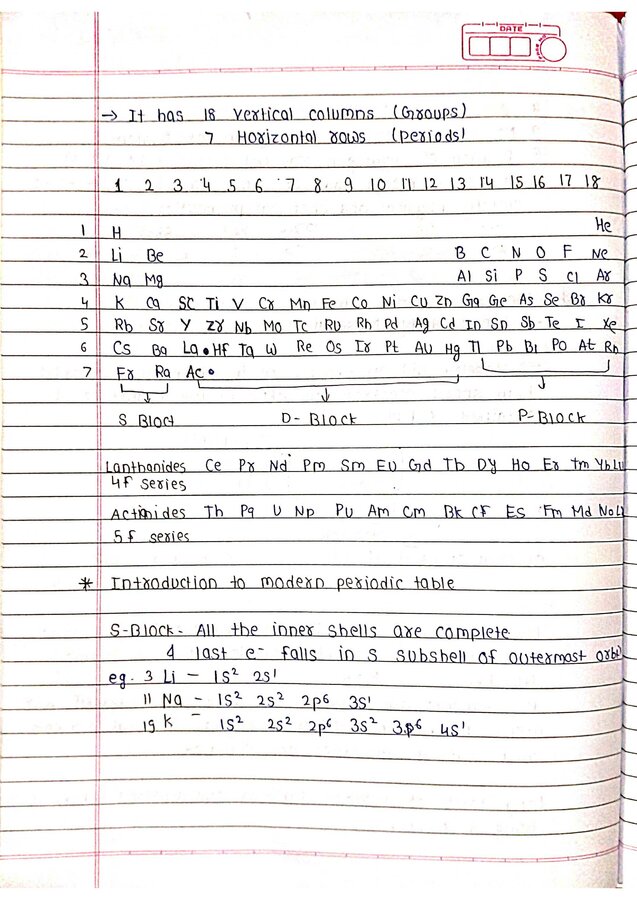 DATE
→ It has 18 vertical columns (Groups)
7 Horizontal rows (Periods)
1 2 3 4 5 6 7 8 9 10 11 12 13 14 15 16 17 18
1 H He
2 Li Be B C N O F Ne
3 Na Mg Al Si P S Cl Ar
4 K Ca SC Ti V Cr Mn Fe Co Ni Cu Zn Ga Ge As Se Br Kr
5 Rb Sr Y Zr Nb Mo Tc Ru Rh Pd Ag Cd In Sn Sb Te I Xe
6 CS Ba La • Hf Ta W Re Os Ir Pt AU Hg Tl Pb Bi PO At Rn
7 Fr Ra Ac •
S Block D- Block P-Block
Lanthanides Ce Pr Nd Pm Sm EU Gd Tb DY Ho Er tm Yb Lu
4f series
Actinides Th Pa U Np Pu Am Cm Bk CF Es Fm Md No
5f series
* Introduction to modern periodic table
S-Block - All the inner shells are complete
& last e⁻ falls in s subshell of outermost
eg. 3 Li - 1S² 2s¹
11 Na - 1S² 2s² 2p⁶ 3s¹
19 K - 1S² 2s² 2p⁶ 3s² 3p⁶ 4s¹